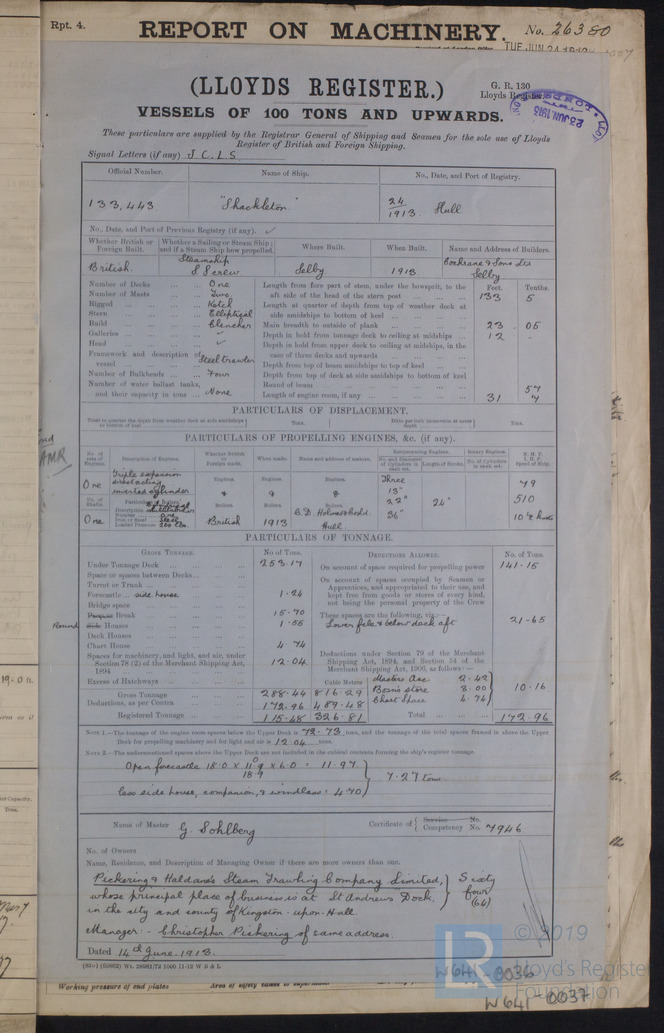 Rpt. 4.
REPORT ON MACHINERY. No. 26380
TUE. JUN. 24 1913
(LLOYDS REGISTER.)
G. R. 130
Lloyds Register
VESSELS OF 100 TONS AND UPWARDS.
23 JUN. 1913
These particulars are supplied by the Registrar General of Shipping and Seamen for the sole use of Lloyds
Register of British and Foreign Shipping.
Signal Letters (if any) J.C.L.S.
Official Number. Name of Ship. No., Date, and Port of Registry.
133,443 "Shackleton" 24/1913 Hull
No., Date, and Port of Previous Registry (if any).
Whether British or Foreign Built. Whether a Sailing or Steam Ship; and if a Steam Ship how propelled. Where Built. When Built. Name and Address of Builders.
British. Steamship S Screw Selby 1913 Cochrane & Sons Ltd Selby
Feet. Tenths.
Number of Decks One
Number of Masts Two
Rigged Ketch
Stern Elliptical
Build Clencher
Galleries
Head
Framework and description of vessel Steel Trawler
Number of Bulkheads Four
Number of water ballast tanks, and their capacity in tons None
Length from fore part of stem, under the bowsprit, to the
aft side of the head of the stern post 133 5
Length at quarter of depth from top of weather deck at
side amidships to bottom of keel
Main breadth to outside of plank 23 05
Depth in hold from tonnage deck to ceiling at midships 12 -
Depth in hold from upper deck to ceiling at midships, in the
case of three decks and upwards
Depth from top of beam amidships to top of keel
Depth from top of deck at side amidships to bottom of keel
Round of beam 57
Length of engine room, if any 31 7
PARTICULARS OF DISPLACEMENT.
PARTICULARS OF PROPELLING ENGINES, &c. (if any).
No. of sets of Engines. Description of Engines. Whether British or Foreign made. When made. Name and address of makers. Reciprocating Engines. Rotary Engines. N.H.P. I.H.P. Speed of Ship.
No. and Diameter of Cylinders in each set. Length of Stroke. No. of Cylinders in each set.
One Triple expansion direct acting inverted cylinder Engines. Engines. Engines. Three 13" 22" 36" 24" 79 510 10½ knots
No. of Shafts. Particulars of Boilers. Boilers. Boilers. Boilers.
Number One
Iron or Steel Steel
Loaded Pressure 200 lbs.
One British 1913 C.D. Holmes & Co Ltd Hull
PARTICULARS OF TONNAGE.
GROSS TONNAGE. No of Tons.
Under Tonnage Deck 253.17
Space or spaces between Decks
Turret or Trunk
Forecastle side house 1.24
Bridge space
Break 15.70
Round Houses 1.55
Deck Houses
Chart House 4.74
Spaces for machinery, and light, and air, under
Section 78 (2) of the Merchant Shipping Act,
1894 12.04
Excess of Hatchways
Cubic Metres
Gross Tonnage 288.44 816.29
Deductions, as per Contra 172.96 489.48
Registered Tonnage 115.48 326.81
DEDUCTIONS ALLOWED. No. of Tons.
On account of space required for propelling power 141.15
On account of spaces occupied by Seamen or
Apprentices, and appropriated to their use, and
kept free from goods or stores of every kind,
not being the personal property of the Crew
These spaces are the following, viz.:—
Lower fcle & below deck aft 21.65
Deductions under Section 79 of the Merchant
Shipping Act, 1894, and Section 54 of the
Merchant Shipping Act, 1906, as follows:—
Masters Acc 2.42
Bosn's store 3.00
Chart Space 4.74
10.16
Total 172.96
NOTE 1.—The tonnage of the engine room spaces below the Upper Deck is 72.73 tons, and the tonnage of the total spaces framed in above the Upper
Deck for propelling machinery and for light and air is 12.04 tons.
NOTE 2.—The undermentioned spaces above the Upper Deck are not included in the cubical contents forming the ship's register tonnage.
less side house, companion, & windlass = 4.70
7.27 tons
Name of Master G. Sohlberg Certificate of { Service No. Competency No. 7946
No. of Owners
Name, Residence, and Description of Managing Owner if there are more owners than one.
Pickering & Haldane's Steam Trawling Company Limited,
whose principal place of business is at St Andrew's Dock,
in the city and county of Kingston-upon-Hull
Sixty four (64)
Manager:- Christopher Pickering of same address.
Dated 14th June. 1913.
LR
© 2019
Lloyd's Register
Foundation
W641-0036
W641-0037
Working pressure of end plates